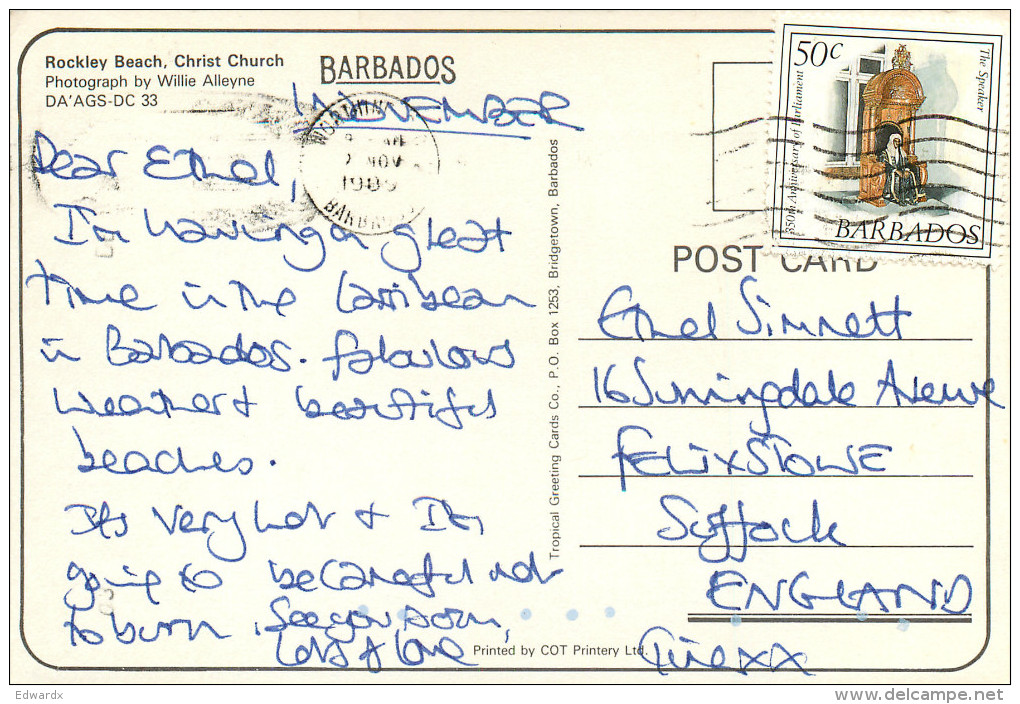 Rockley Beach, Christ Church
Photograph by Willie Alleyne
DA'AGS-DC 33
BARBADOS
NOVEMBER
Dear Ethel,
I'm having a great
time in the Carribean
in Barbados. Fabulous
weather & beautiful
beaches.
It's very hot & I'm
going to be careful not
to burn. See you soon,
Lots of love
NOV
BARBADOS
Tropical Greeting Cards Co., P.O. Box 1253, Bridgetown, Barbados
50c
The Speaker
350th Anniversary of Parliament
BARBADOS
POST CARD
Ethel Simnett
16 Sunningdale Avenue
FELIXSTOWE
Suffolk
ENGLAND
Printed by COT Printery Ltd.
Edwardx
www.delcampe.net